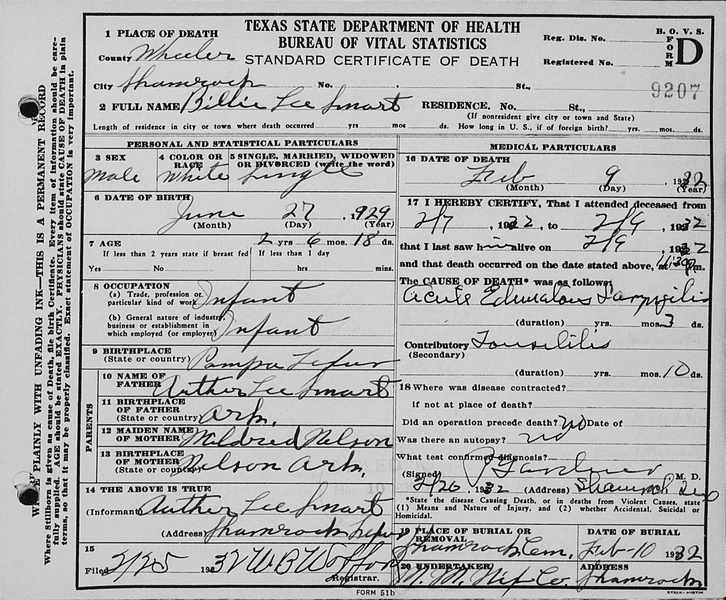 TEXAS STATE DEPARTMENT OF HEALTH
BUREAU OF VITAL STATISTICS
STANDARD CERTIFICATE OF DEATH
B. O. V. S.
FORM D
Reg. Dis. No.
Registered No.
9207
WRITE PLAINLY WITH UNFADING INK—THIS IS A PERMANENT RECORD
Where Stillborn is given as cause of Death, file birth Certificate. Every item of information should be carefully supplied. AGE should be stated EXACTLY. PHYSICIANS should state CAUSE OF DEATH in plain terms, so that it may be properly classified. Exact statement of OCCUPATION is very important.
1 PLACE OF DEATH
County Wheeler
City Shamrock No. St.,
2 FULL NAME Billie Lee Smart RESIDENCE. No. St.,
(If nonresident give city or town and State)
Length of residence in city or town where death occurred yrs mos. ds. How long in U. S., if of foreign birth? yrs. mos. ds.
PERSONAL AND STATISTICAL PARTICULARS
3 SEX 4 COLOR OR RACE 5 SINGLE, MARRIED, WIDOWED OR DIVORCED (write the word)
Male White Single
6 DATE OF BIRTH
June 27 1929
(Month) (Day) (Year)
7 AGE 2 yrs 6 mos. 18 ds.
If less than 2 years state if breast fed If less than 1 day
Yes No hrs min
8 OCCUPATION
(a) Trade, profession, or particular kind of work Infant
(b) General nature of industry, business or establishment in which employed (or employer) Infant
9 BIRTHPLACE
(State or country) Pampa Texas
PARENTS
10 NAME OF FATHER Author Lee Smart
11 BIRTHPLACE OF FATHER
(State or country) Ark.
12 MAIDEN NAME OF MOTHER Mildred Nelson
13 BIRTHPLACE OF MOTHER
(State or country) Nelson Ark.
14 THE ABOVE IS TRUE
(Informant) Author Lee Smart
(Address) Shamrock Texas
15
Filed 2/25 1932 W B
Registrar.
MEDICAL PARTICULARS
16 DATE OF DEATH
Feb 9 1932
(Month) (Day) (Year)
17 I HEREBY CERTIFY, That I attended deceased from
2/7, 1932, to 2/9, 1932
that I last saw him alive on 2/9, 1932
and that death occurred on the date stated above, at
The CAUSE OF DEATH* was as follows:
Acute Edematous Laryngitis
(duration) yrs. mos. 3 ds.
Contributory Tonsilitis
(Secondary)
(duration) yrs. mos. 10 ds.
18 Where was disease contracted?
if not at place of death?
Did an operation precede death? no Date of
Was there an autopsy? no
What test confirmed diagnosis?
(Signed) Gardner M. D.
2/26 1932 (Address) Shamrock Tex
*State the disease Causing Death, or in deaths from Violent Causes, state (1) Means and Nature of Injury, and (2) whether Accidental, Suicidal or Homicidal.
19 PLACE OF BURIAL OR REMOVAL DATE OF BURIAL
Shamrock Cem. Feb-10 1932
20 UNDERTAKER ADDRESS
Co. Shamrock
FORM 51b